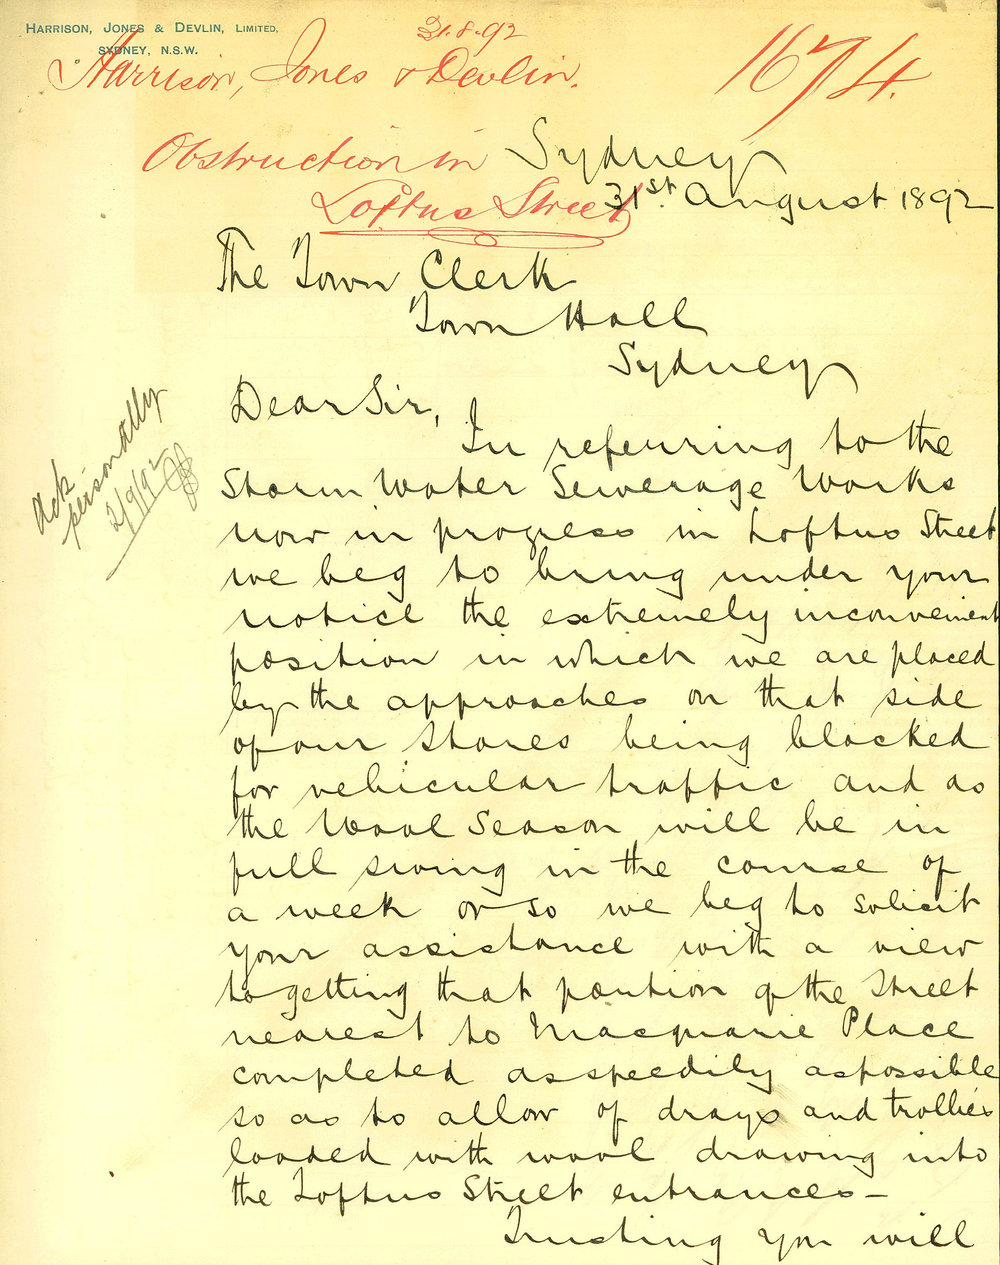 HARRISON, JONES & DEVLIN, LIMITED,
SYDNEY, N.S.W.
31.8.92
Harrison, Jones & Devlin.
1674.
Obstruction in
Loftus Street
Sydney
31st August 1892
The Town Clerk
Town Hall
Sydney
Dear Sir,
Ack
personally
2/9/92
In referring to the
Storm Water Sewerage Works
now in progress in Loftus Street
we beg to bring under your
notice the extremely inconvenient
position in which we are placed
by the approaches on that side
of our Stores being blocked
for vehicular traffic and as
the Wool Season will be in
full swing in the course of
a week or so we beg to solicit
your assistance with a view
to getting that portion of the Street
nearest to Macquarie Place
completed as speedily as possible
so as to allow of drays and trollies
loaded with wool drawing into
the Loftus Street entrances -
Trusting you will